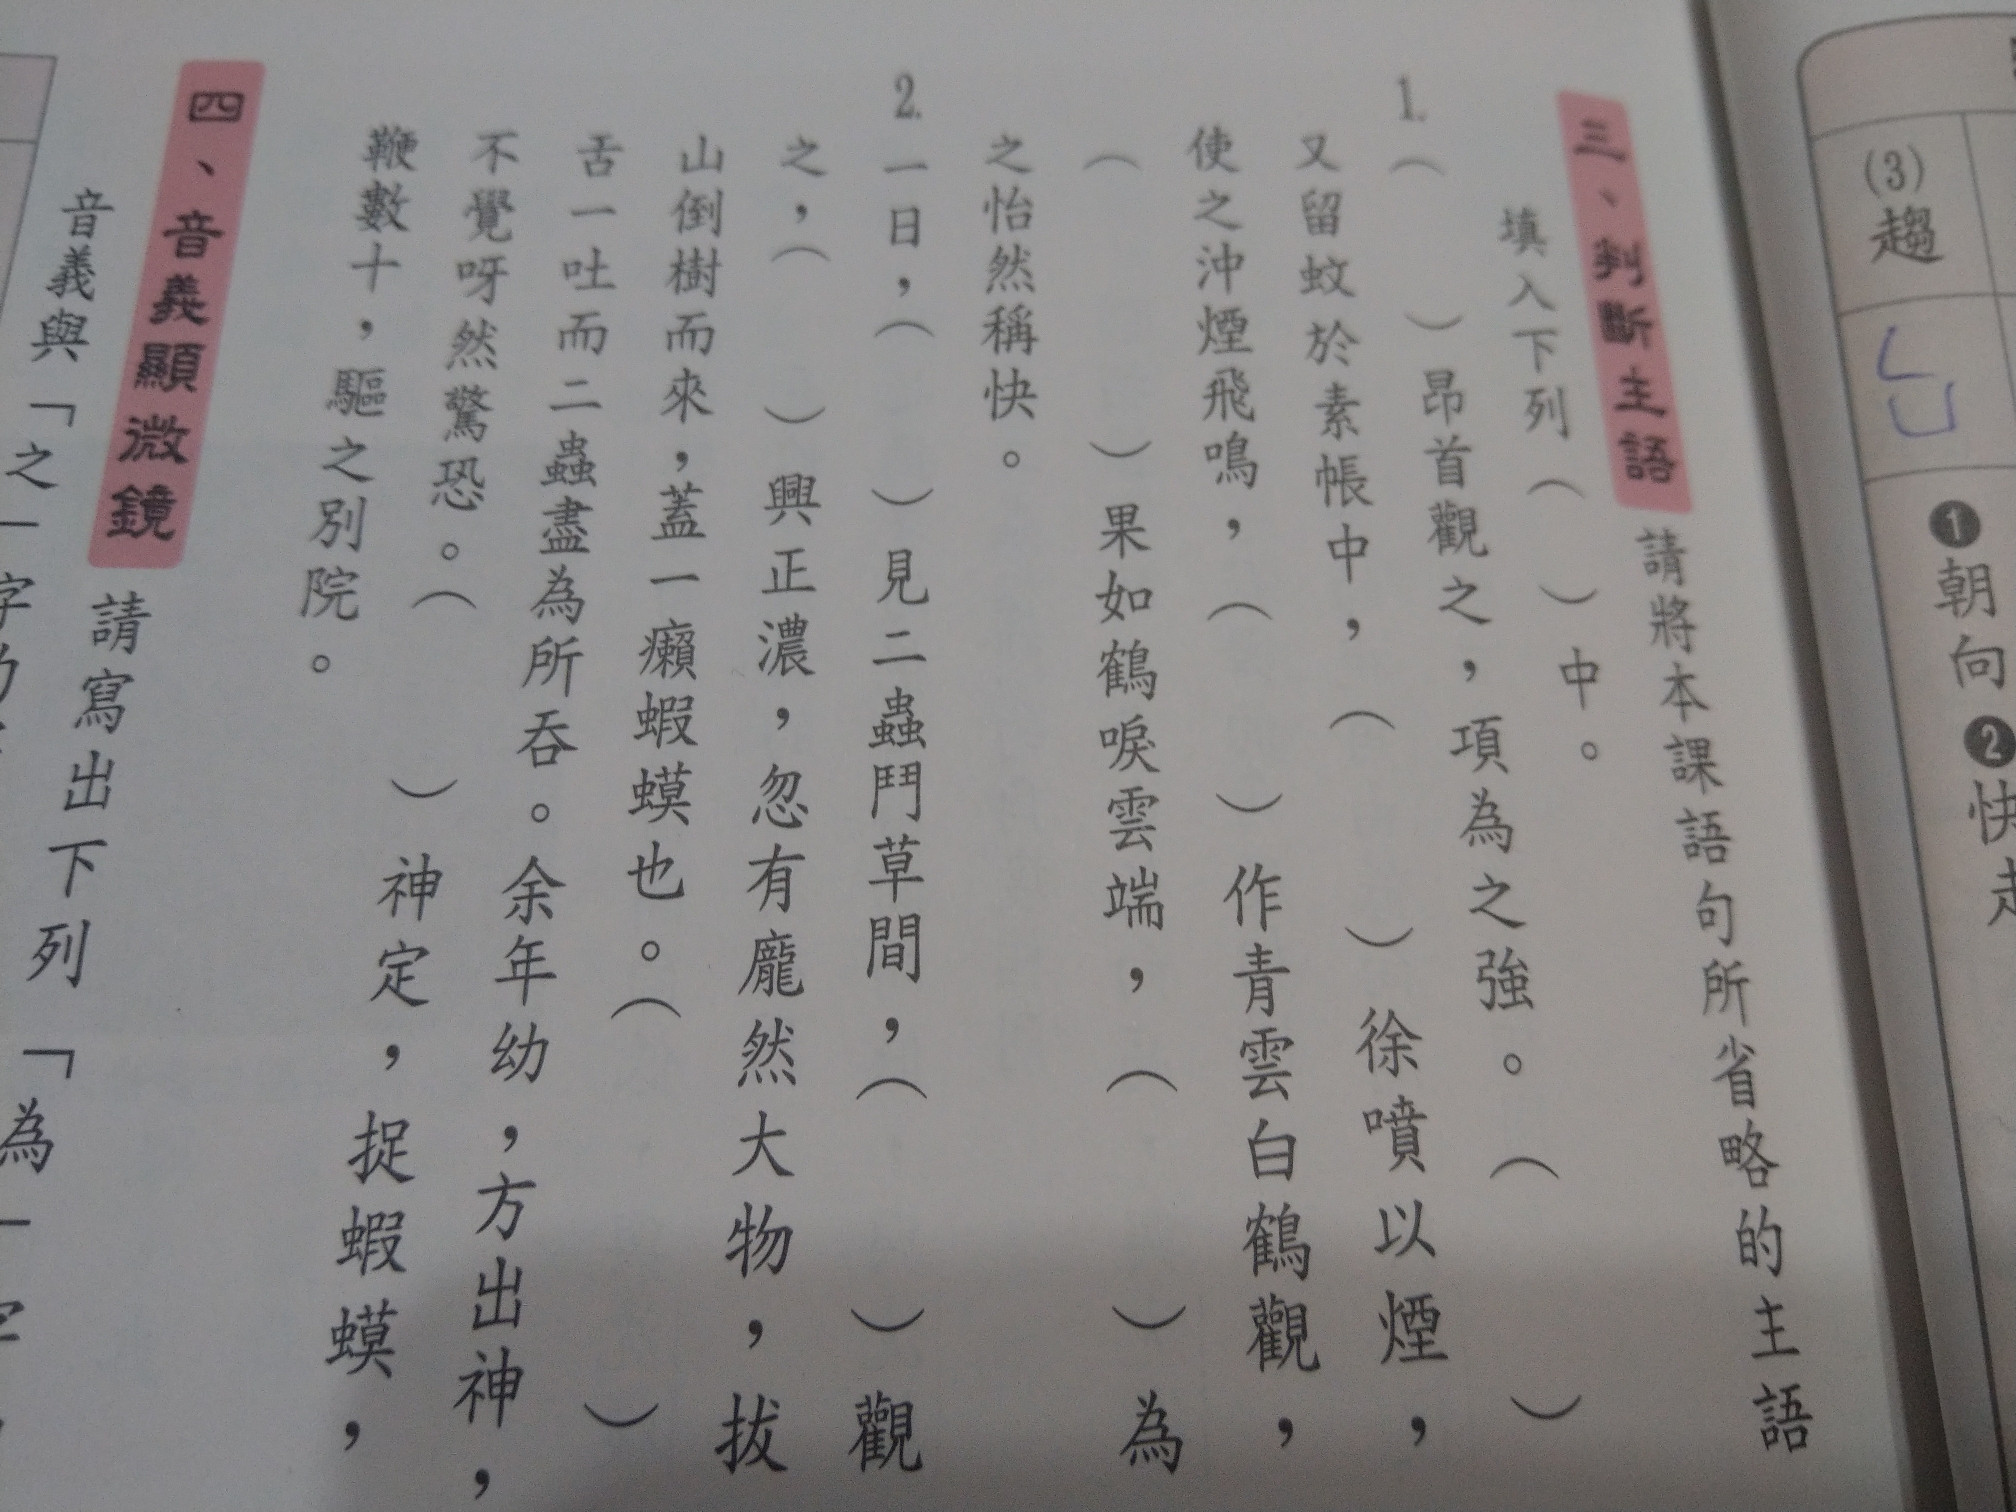 (3)趨
ㄑㄩ
❶朝向❷快走
三、判斷主語 請將本課語句所省略的主語
填入下列（　　）中。
1.（　　）昂首觀之，項為之強。（　　）
又留蚊於素帳中，（　　）徐噴以煙，
使之沖煙飛鳴，（　　）作青雲白鶴觀，
（　　）果如鶴唳雲端，（　　）為
之怡然稱快。
2.一日，（　　）見二蟲鬥草間，（　　）觀
之，（　　）興正濃，忽有龐然大物，拔
山倒樹而來，蓋一癩蝦蟆也。（　　）
舌一吐而二蟲盡為所吞。余年幼，方出神，
不覺呀然驚恐。（　　）神定，捉蝦蟆，
鞭數十，驅之別院。
四、音義顯微鏡 請寫出下列「為」字
音義與「之」字的